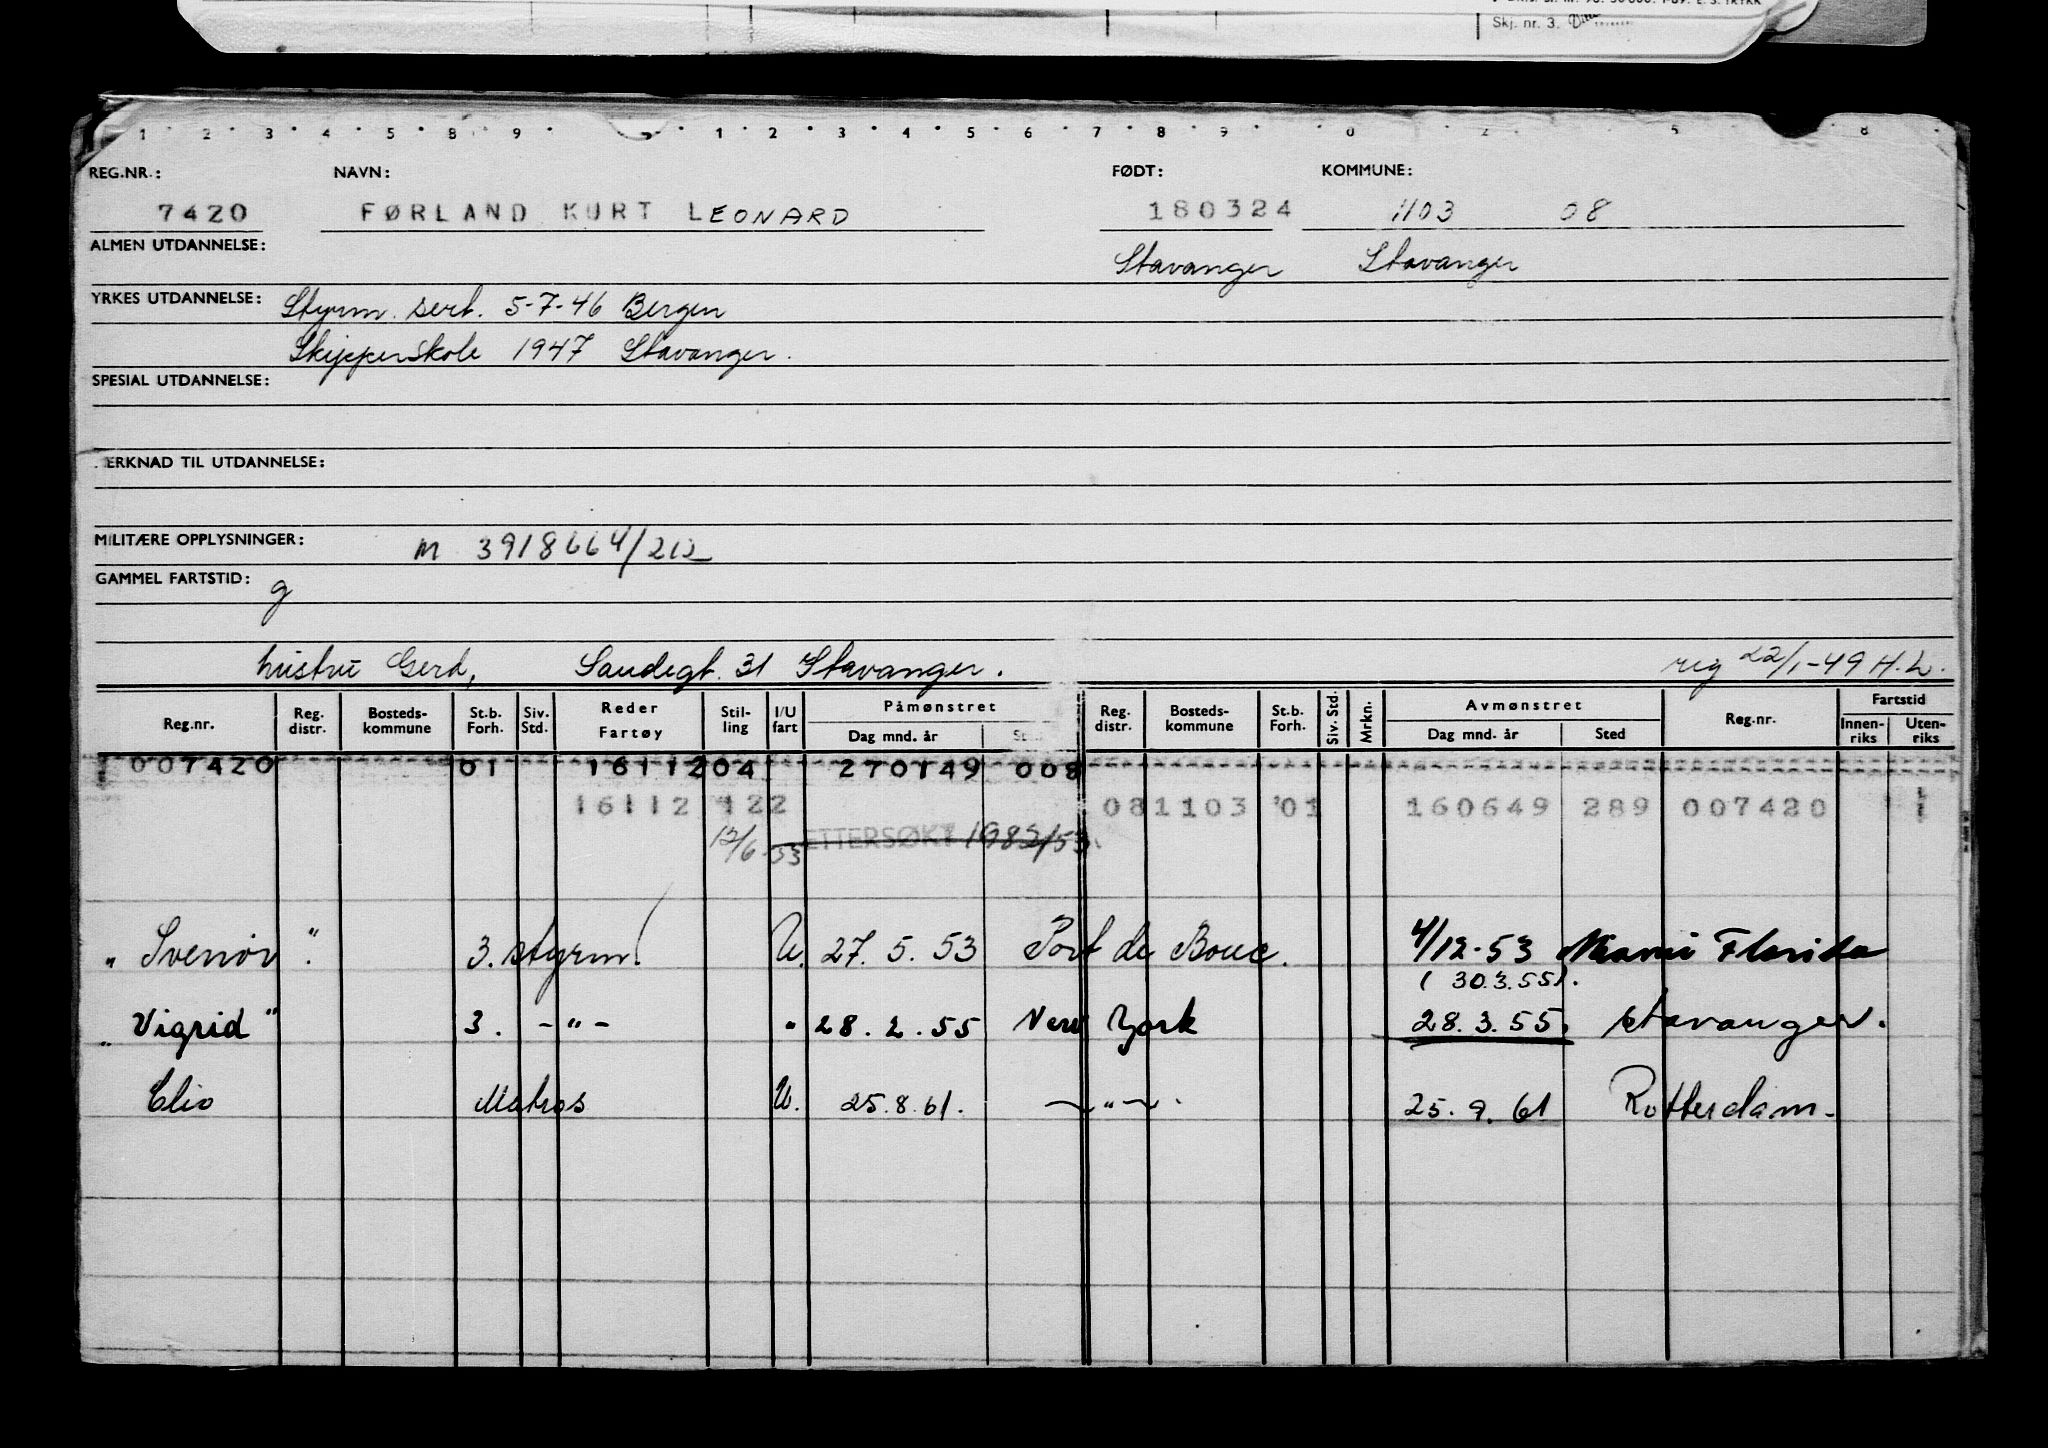 Skj. nr. 3.
REG.NR.: NAVN: FØDT: KOMMUNE:
7420 FØRLAND KURT LEONARD 180324 1103 08
ALMEN UTDANNELSE: Stavanger Stavanger
YRKES UTDANNELSE: Styrm. sert. 5-7-46 Bergen
Skipperskole 1947 Stavanger.
SPESIAL UTDANNELSE:
ERKNAD TIL UTDANNELSE:
MILITÆRE OPPLYSNINGER: M 3918664/212
GAMMEL FARTSTID: g
hustru Gerd, Sandegt. 31 Stavanger. reg 22/1-49 H.L.
Reg.nr. Reg. distr. Bosteds-kommune St.b. Forh. Siv. Std. Reder Fartøy Stil-ling I/U fart Påmønstret Dag mnd. år Reg. distr. Bosteds-kommune St.b. Forh. Siv. Std. Mrkn. Avmønstret Dag mnd. år Sted Reg.nr. Fartstid Innen-riks Uten-riks
007420 01 16112 04 270149 008
16112 122 081103 01 160649 289 007420
12/6-53 ETTERSØKT 1983/53.
" Svenør " . 3. styrm. U. 27. 5. 53 Port de Bouc. 4/12-53 Miami Florida
( 30.3.55).
" Vigrid " 3. -"- " 28. 2. 55 New York 28. 3. 55. Stavanger.
Clio Matros U. 25. 8. 61. -"- . 25. 9. 61 Rotterdam.